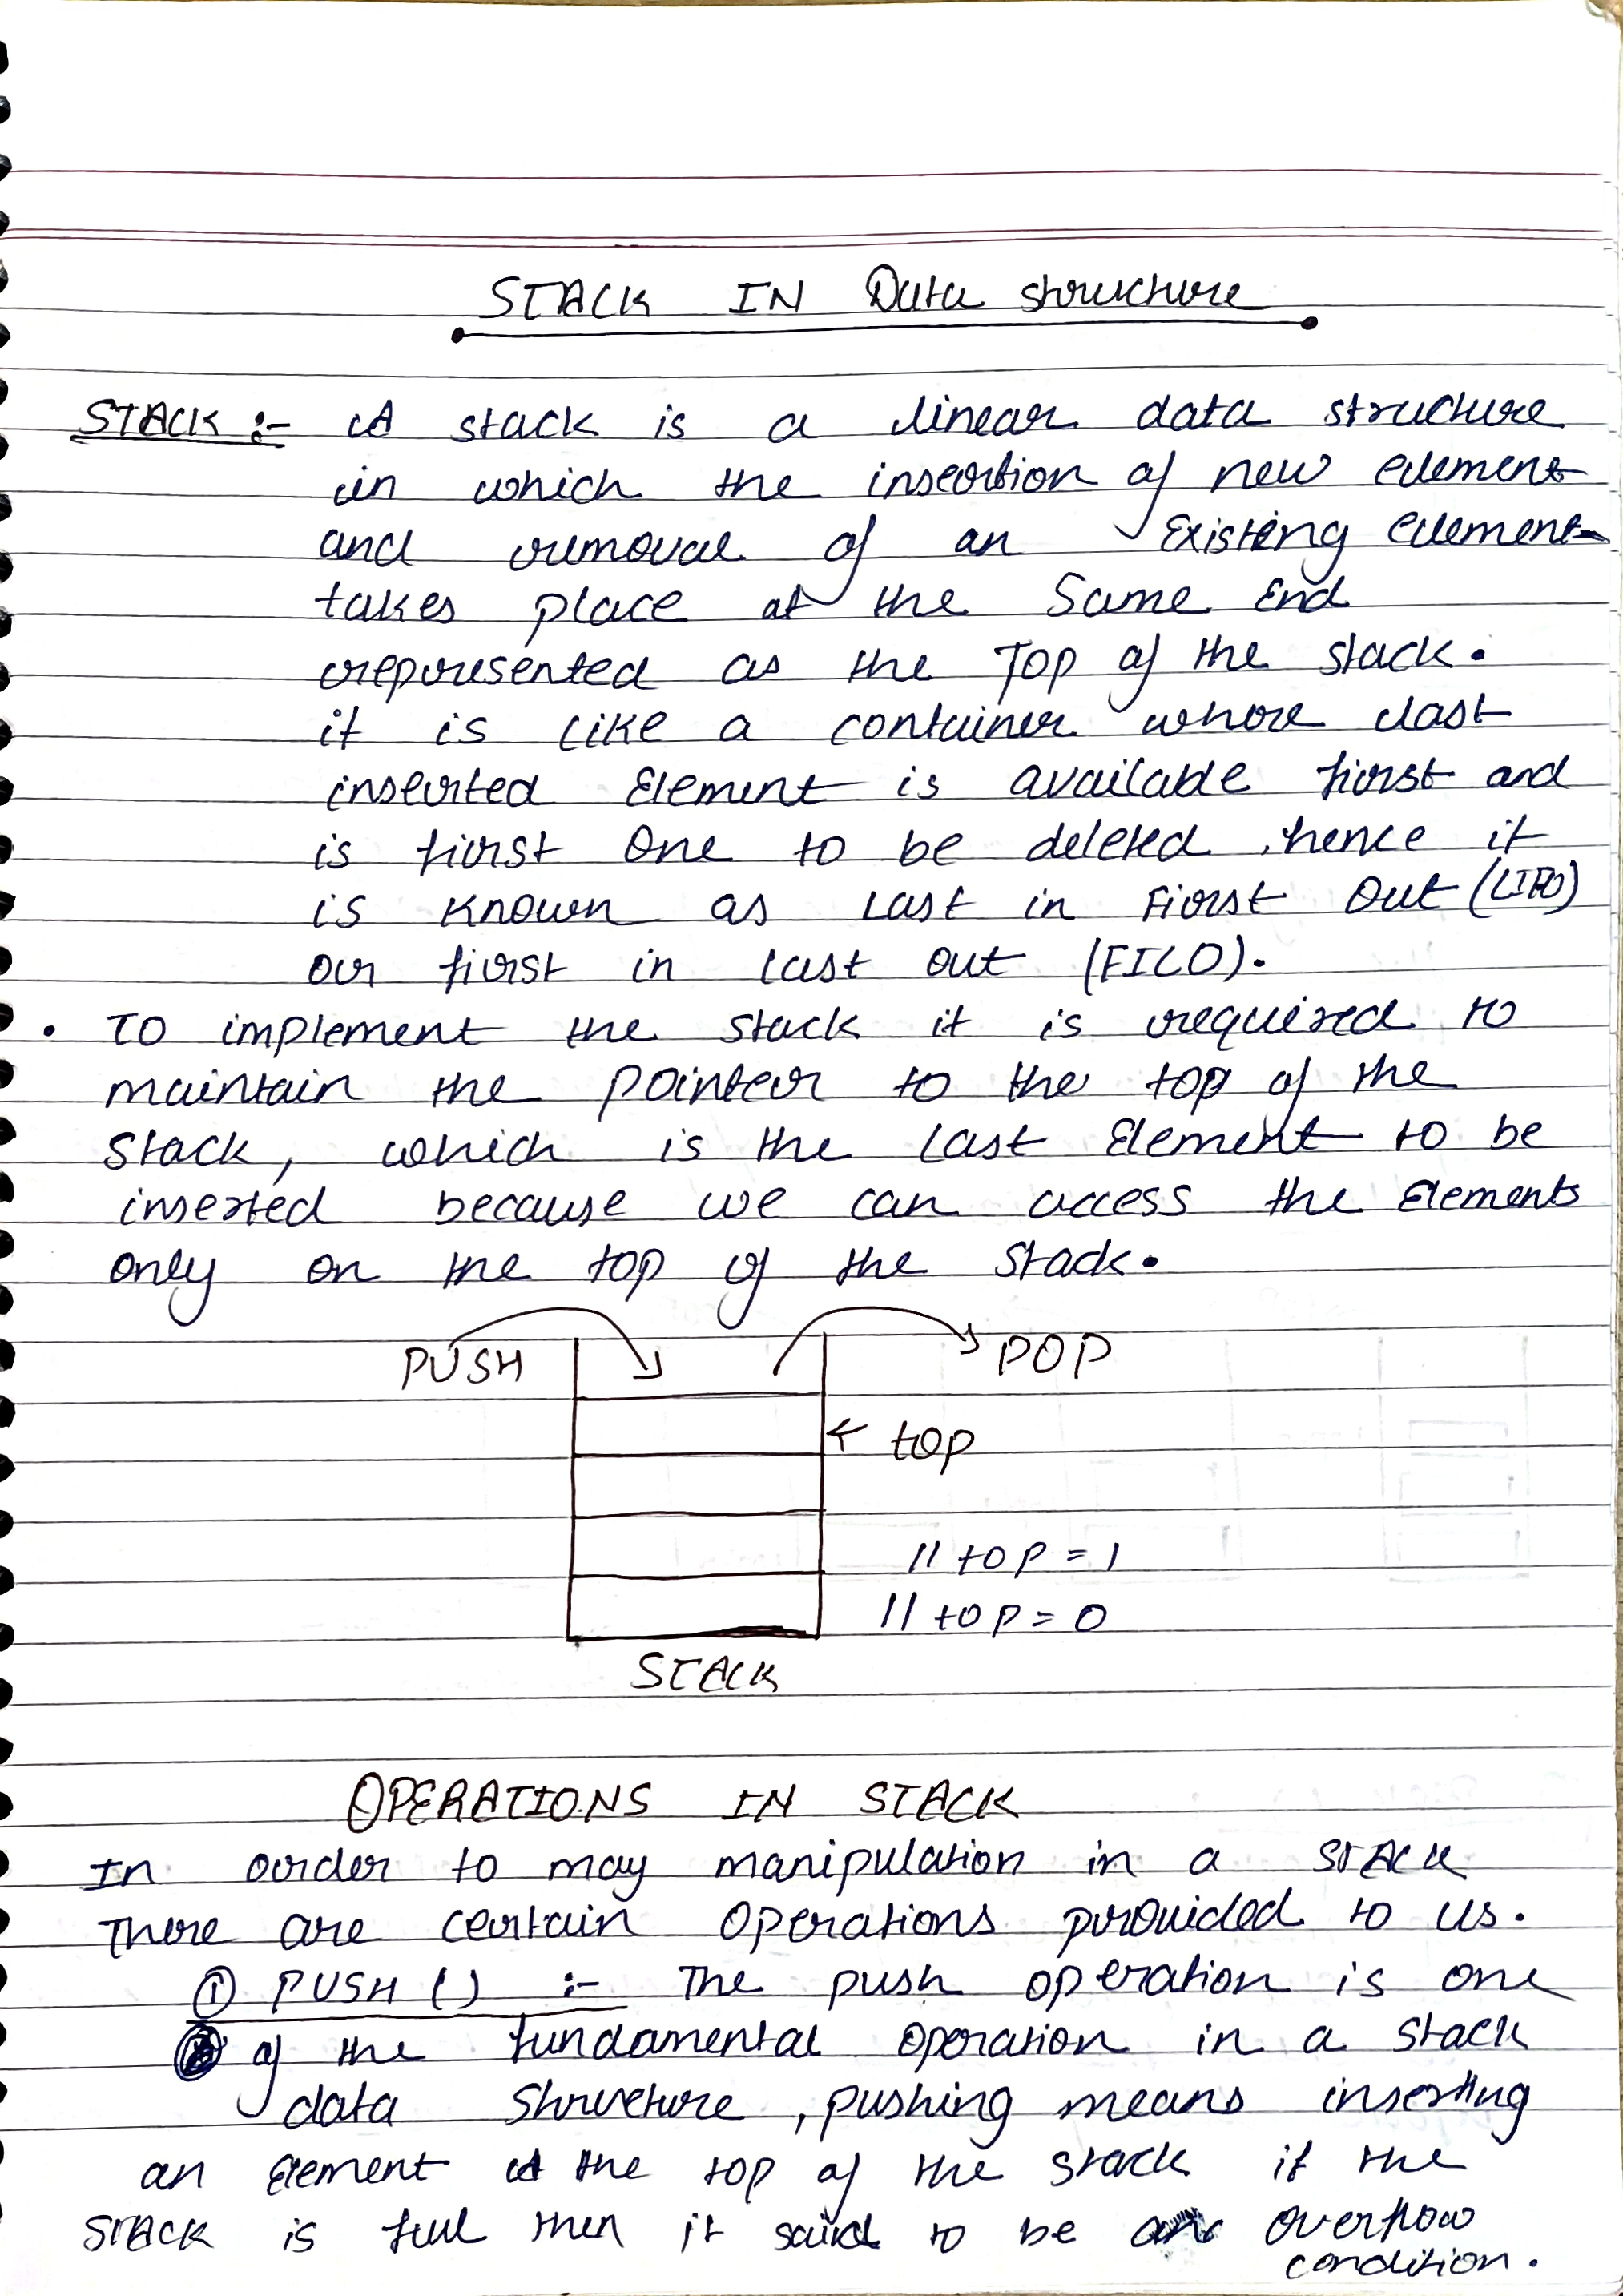 STACK IN Data structure
STACK :- A stack is a linear data structure
in which the insertion of new element
and removal of an Existing element
takes place at the Same End
represented as the Top of the stack.
it is like a container whose last
inserted Element is available first and
is first One to be deleted, hence it
is known as Last in First Out (LIFO)
or first in last out (FILO).
• TO implement the stack it is required to
maintain the pointer to the top of the
Stack, which is the Last Element to be
inserted because we can access the Elements
only on the top of the stack.
PUSH POP
← top
// top = 1
// top = 0
STACK
OPERATIONS IN STACK
In order to may manipulation in a STACK
There are certain Operations provided to us.
① PUSH () :- The push operation is one
of the fundamental operation in a stack
data Structure, pushing means inserting
an Element at the top of the stack if the
STACK is full then it said to be an overflow
condition.